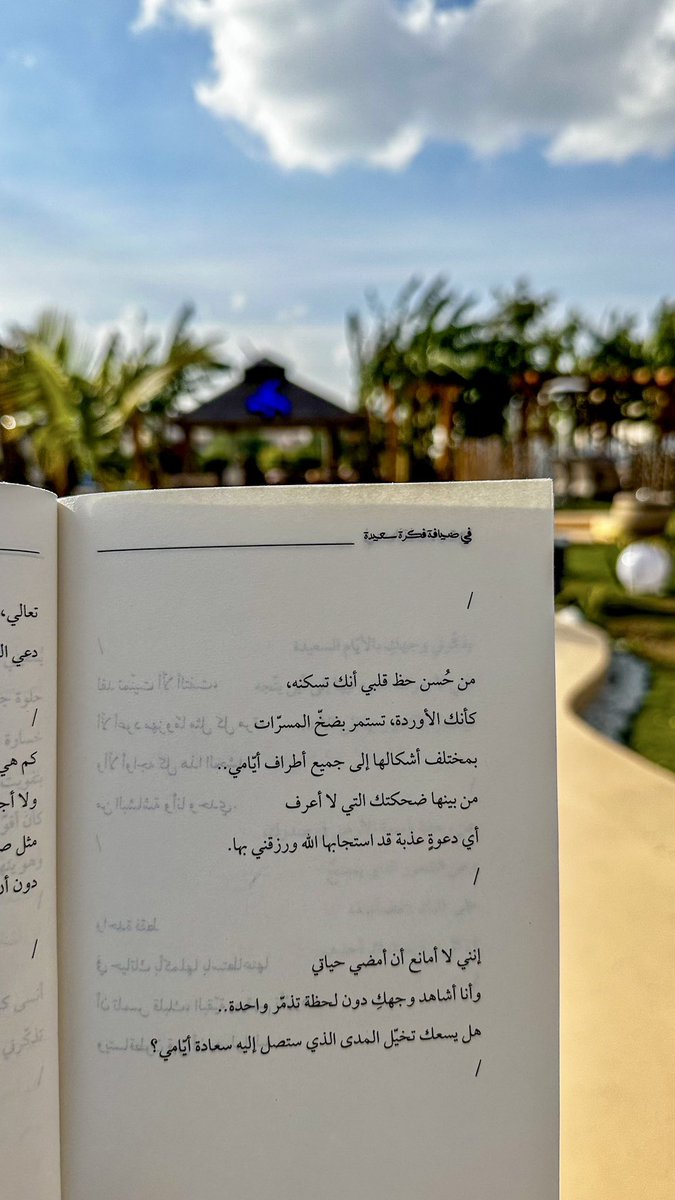 في ضيافة فكرة سعيدة
/
من حُسن حظ قلبي أنك تسكنه،
كأنك الأوردة، تستمر بضخّ المسرّات
بمختلف أشكالها إلى جميع أطراف أيّامي..
من بينها ضحكتك التي لا أعرف
أي دعوةٍ عذبة قد استجابها الله ورزقني بها.
/
إنني لا أمانع أن أمضي حياتي
وأنا أشاهد وجهكِ دون لحظة تذمّر واحدة..
هل يسعك تخيّل المدى الذي ستصل إليه سعادة أيّامي؟
/
تعالي،
دعي
/
كم هي
ولا
مثل
دون
/